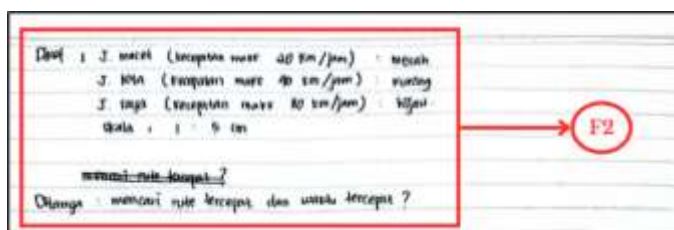 Diket : J. macet (kecepatan maks 20 km/jam) : merah
J. kota (kecepatan maks 40 km/jam) : kuning
J. raya (kecepatan maks 80 km/jam) : hijau
skala : 1 : 5 cm
mencari rute tercepat ?
Ditanya : mencari rute tercepat dan waktu tercepat ?
F2